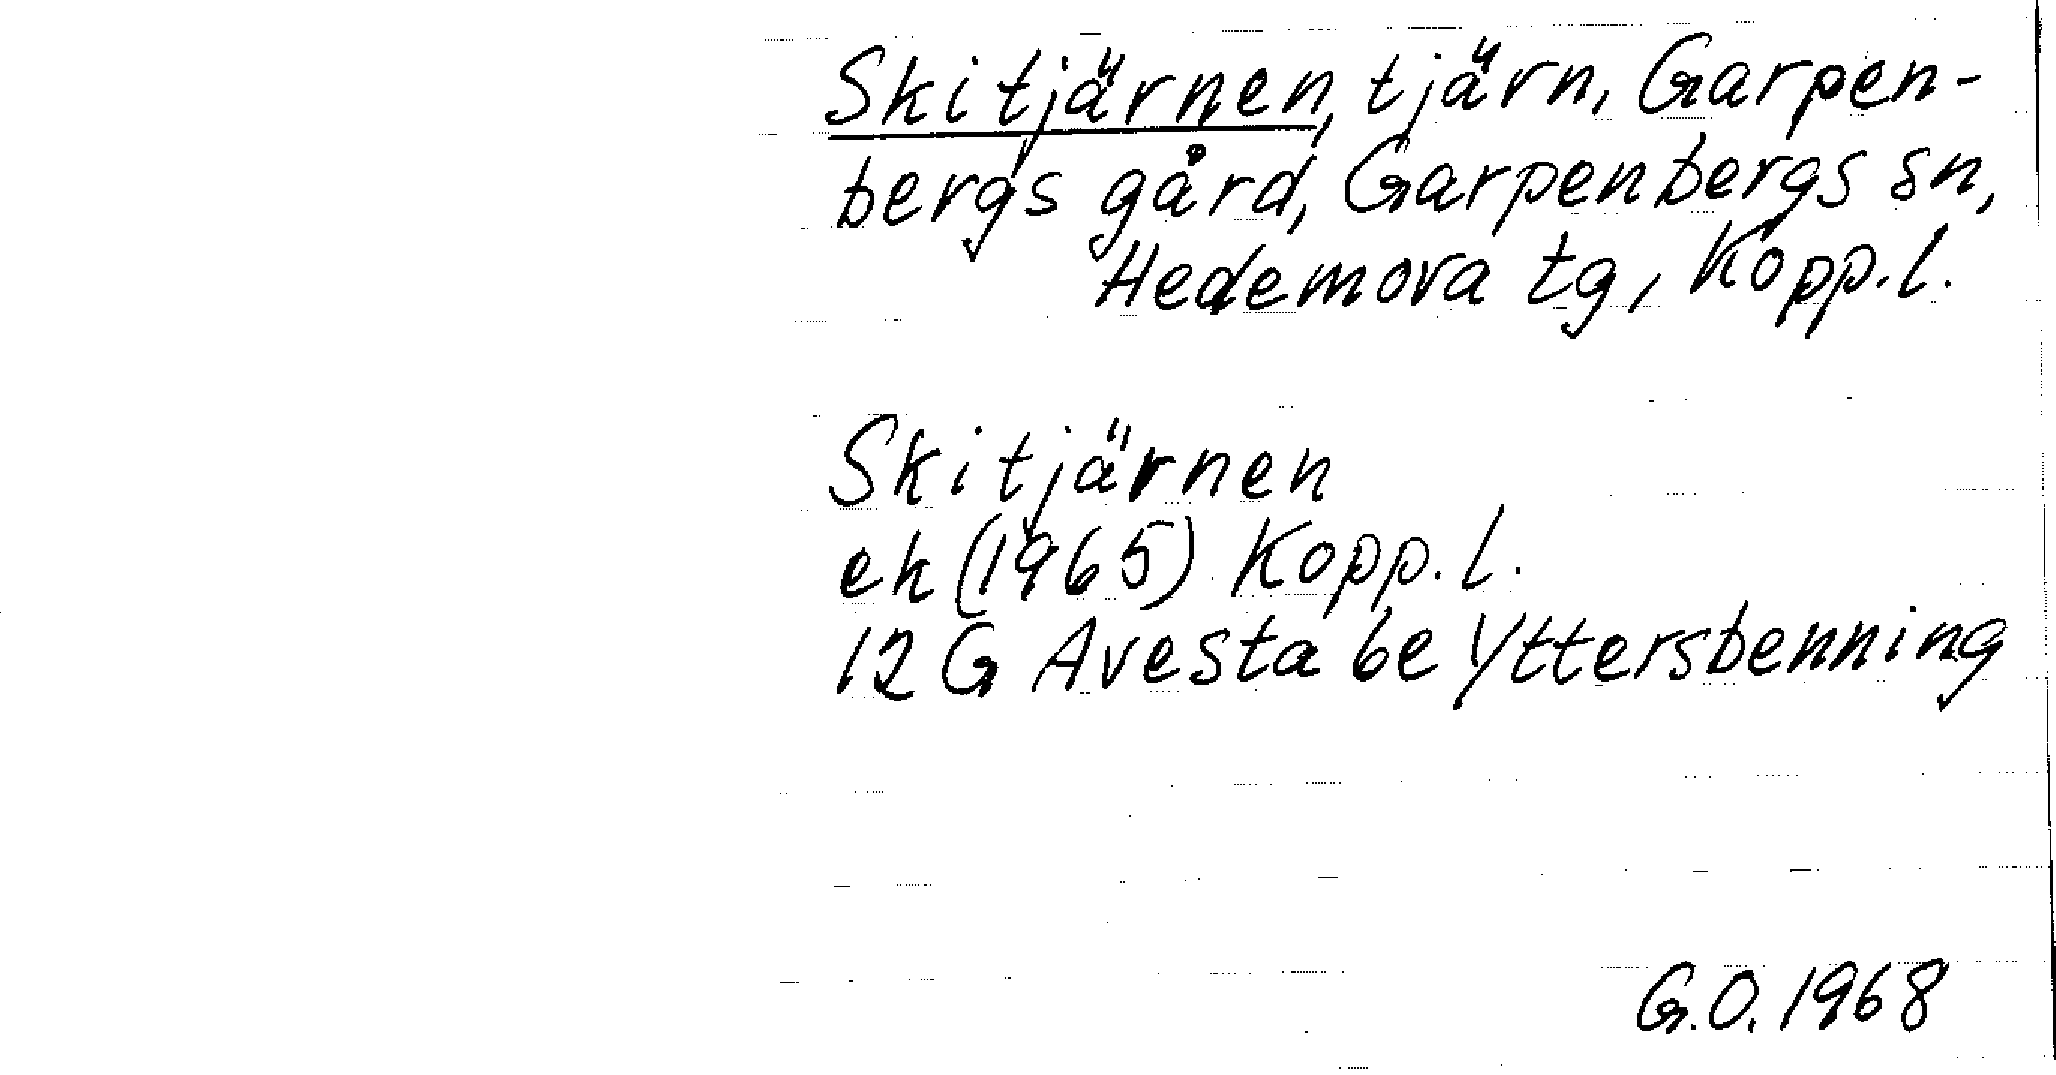 Skitjärnen, tjärn, Garpen-
bergs gård, Garpenbergs sn,
Hedemora tg, Kopp.l.
Skitjärnen
ek (1965) Kopp.l.
12 G Avesta 6e Yttersbenning
G.O. 1968